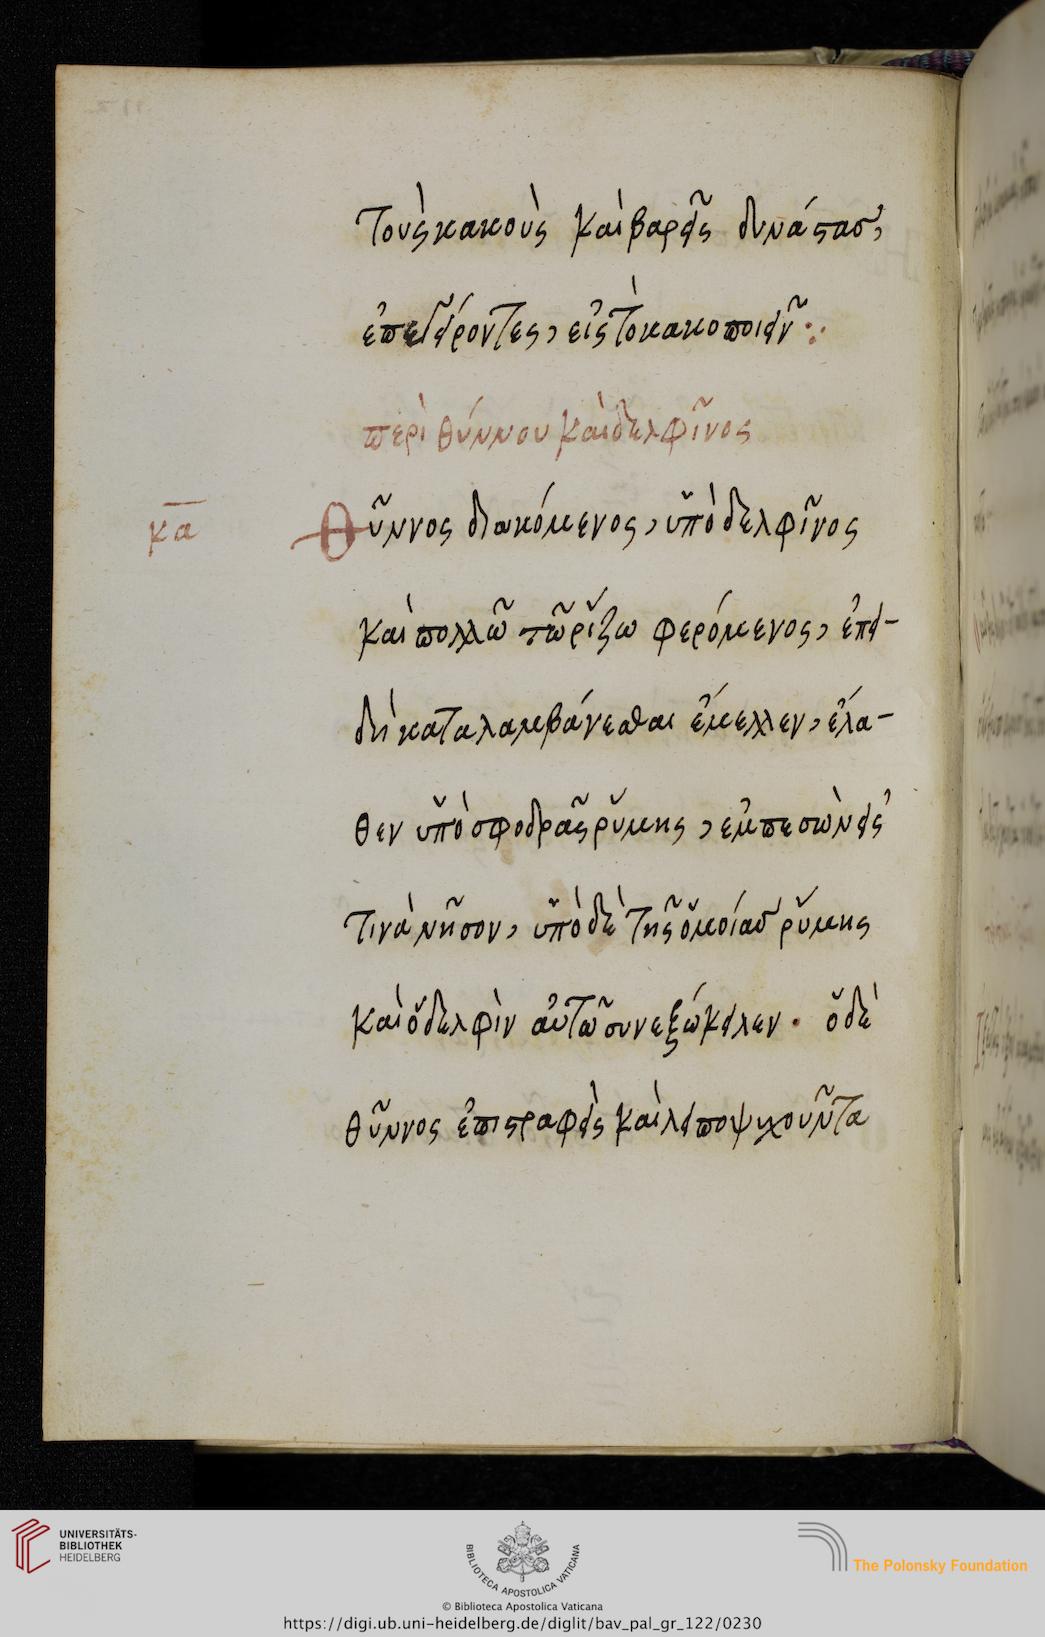 τοὺς κακοὺς καὶ βαρεῖς δυνάστας,
ἐπεγείροντες, εἰς τὸ κακοποιεῖν
περὶ θύννου καὶ δελφῖνος
κα
Θῦννος διωκόμενος, ὑπὸ δελφῖνος
καὶ πολλῶ τῶ ῥίζω φερόμενος, ἐπει-
δὴ καταλαμβάνεσθαι ἔμελλεν, ἔλα-
θεν ὑπὸ σφοδρᾶς ῥύμης, ἐμπεσὼν εἴς
τινὰ νῆσον, ὑπὸ δὲ τῆς ὁμοίας ῥύμης
καὶ ὁ δελφὶν αὐτῶ συνεξώκειλεν. ὁ δὲ
θῦννος ἐπιστραφεὶς καὶ λειποψυχοῦντα
UNIVERSITÄTS-
BIBLIOTHEK
HEIDELBERG
BIBLIOTECA APOSTOLICA VATICANA
The Polonsky Foundation
© Biblioteca Apostolica Vaticana
https://digi.ub.uni-heidelberg.de/diglit/bav_pal_gr_122/0230